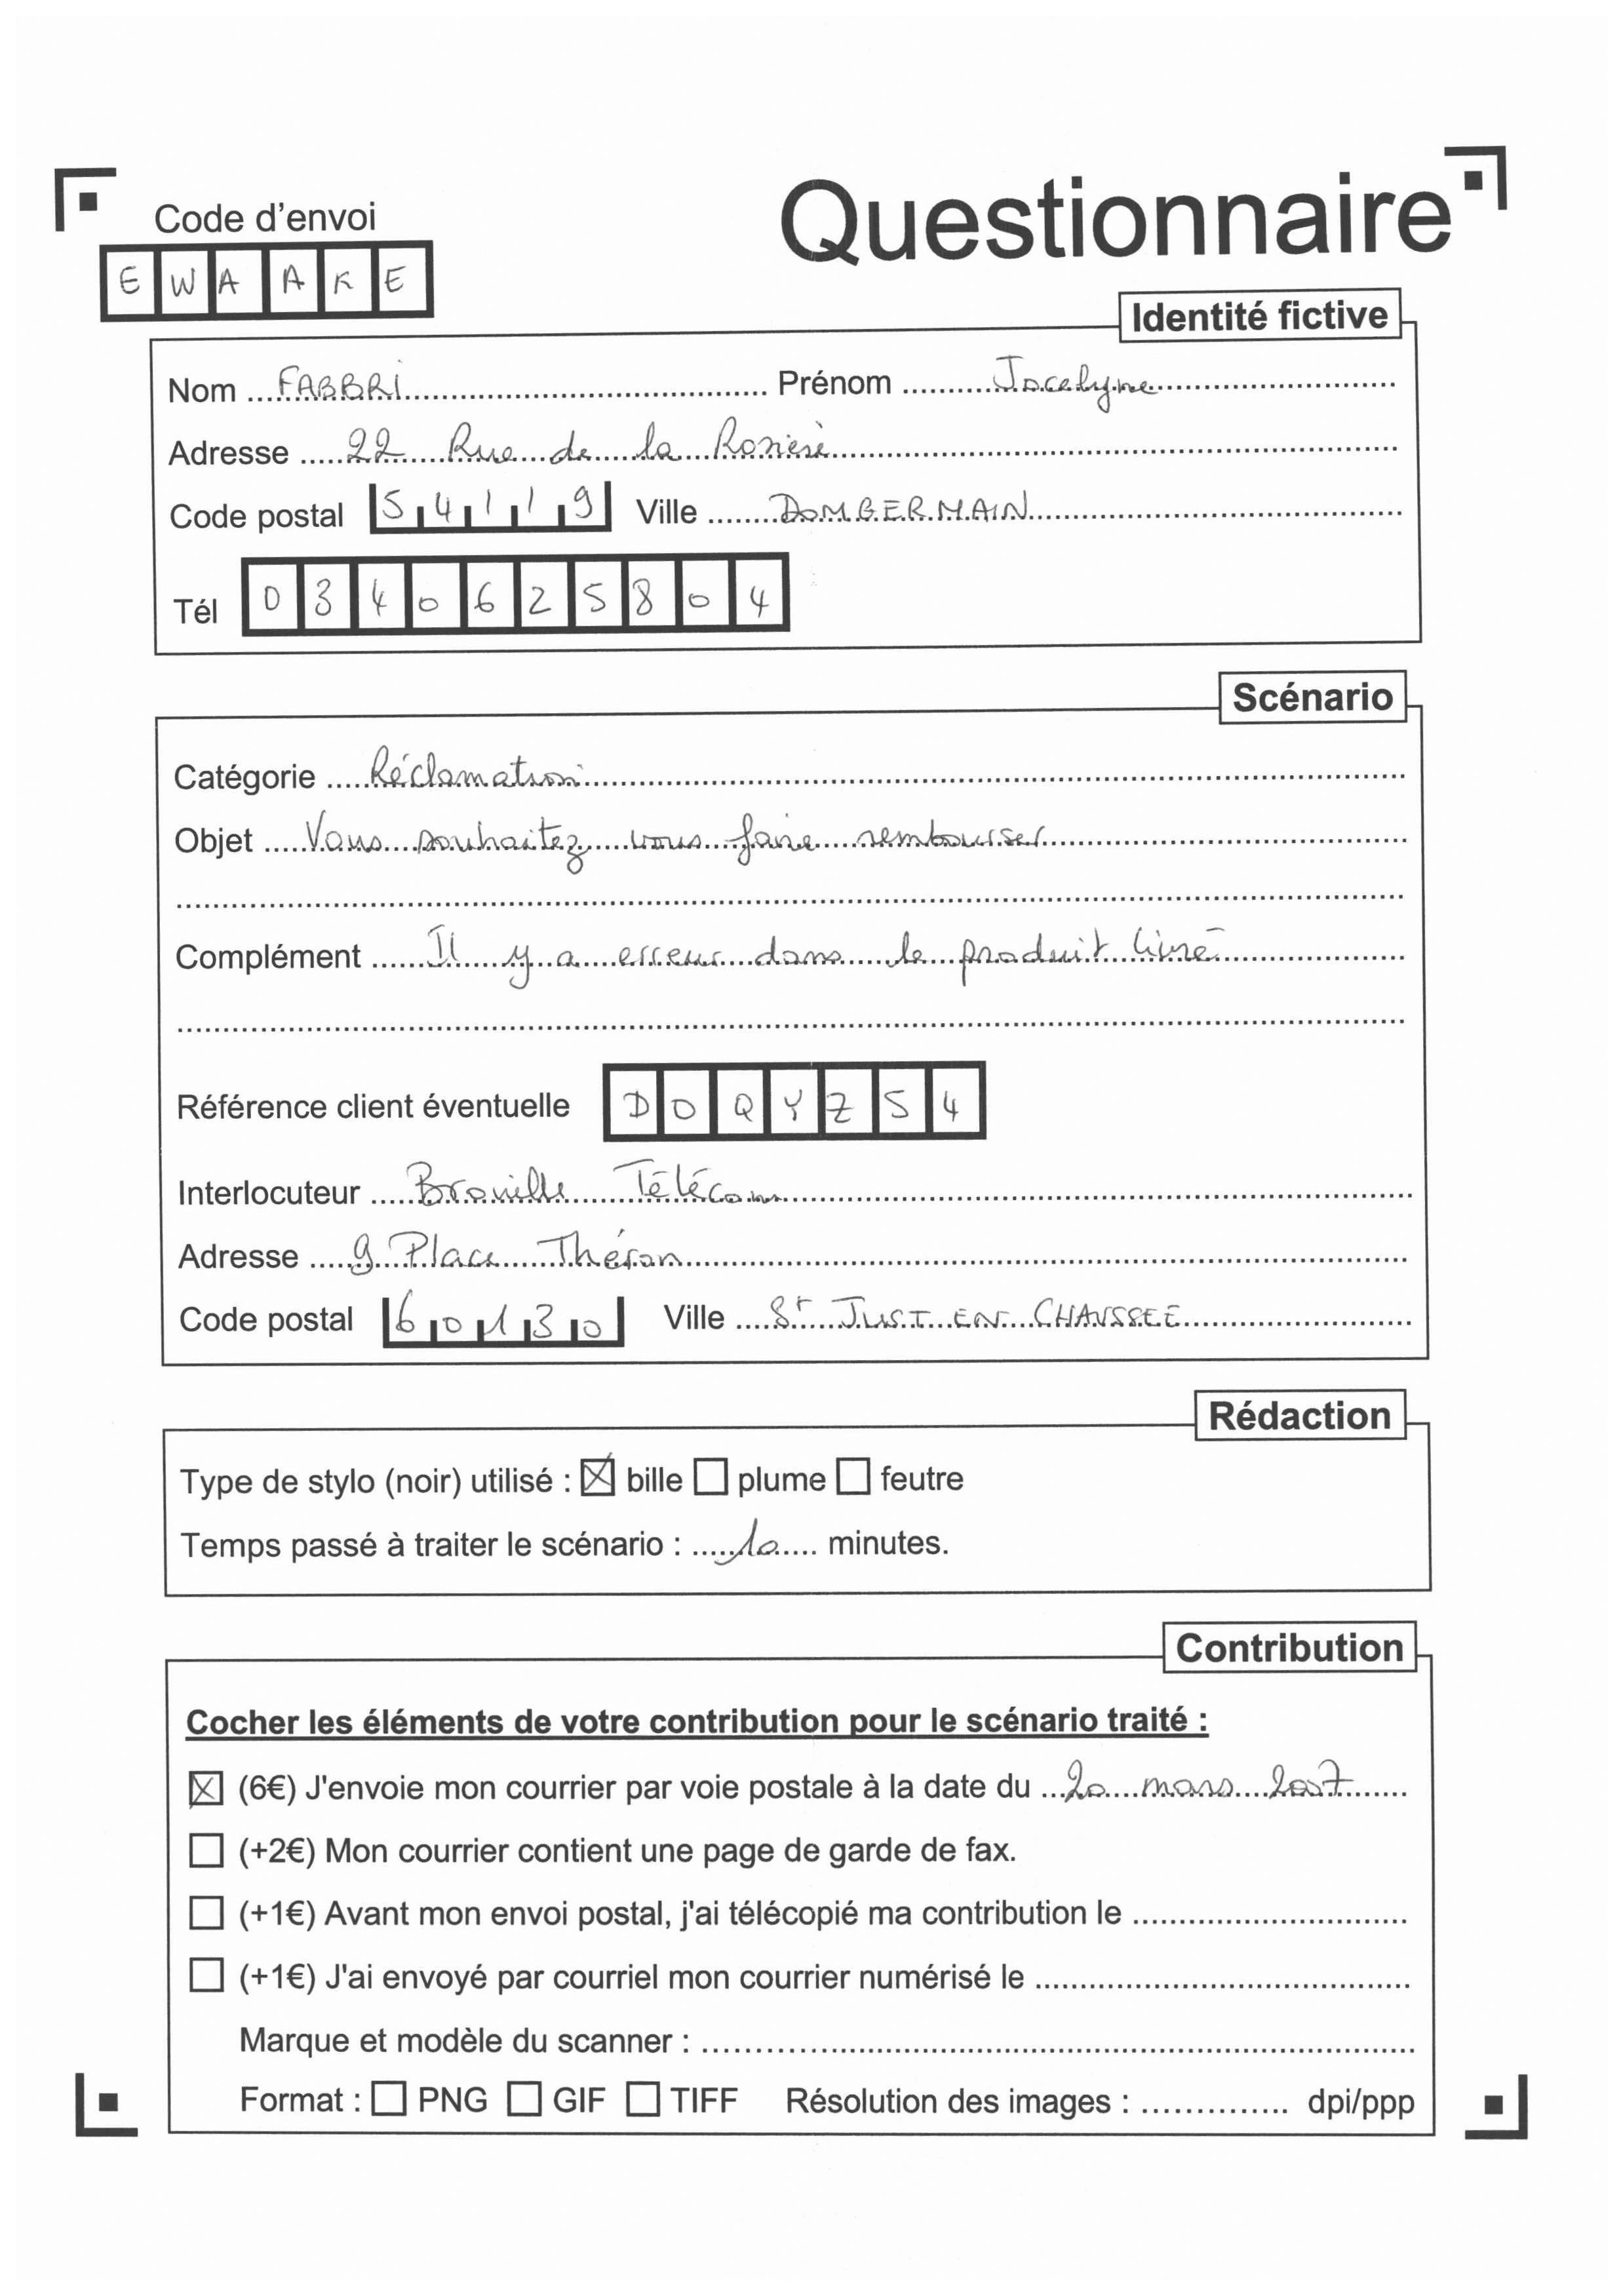 Questionnaire
Code d'envoi
E W A A K E
Identité fictive
Nom FABBRI Prénom Jocelyne
Adresse 22 Rue de la
Code postal 54119 Ville DOMGERMAIN
Tél 0340625804
Scénario
Catégorie Réclamation
Objet Vous souhaitez vous faire rembourser
Complément Il y a erreur dans le produit livré
Référence client éventuelle D O Q Y Z 5 4
Interlocuteur Brouille Télécom
Adresse 9 Place Théron
Code postal 60130 Ville St JUST EN CHAUSSEE
Rédaction
Type de stylo (noir) utilisé : bille plume feutre
Temps passé à traiter le scénario : 10 minutes.
Contribution
Cocher les éléments de votre contribution pour le scénario traité :
(6€) J'envoie mon courrier par voie postale à la date du 20 mars 2007
(+2€) Mon courrier contient une page de garde de fax.
(+1€) Avant mon envoi postal, j'ai télécopié ma contribution le
(+1€) J'ai envoyé par courriel mon courrier numérisé le
Marque et modèle du scanner :
Format : PNG GIF TIFF Résolution des images : dpi/ppp